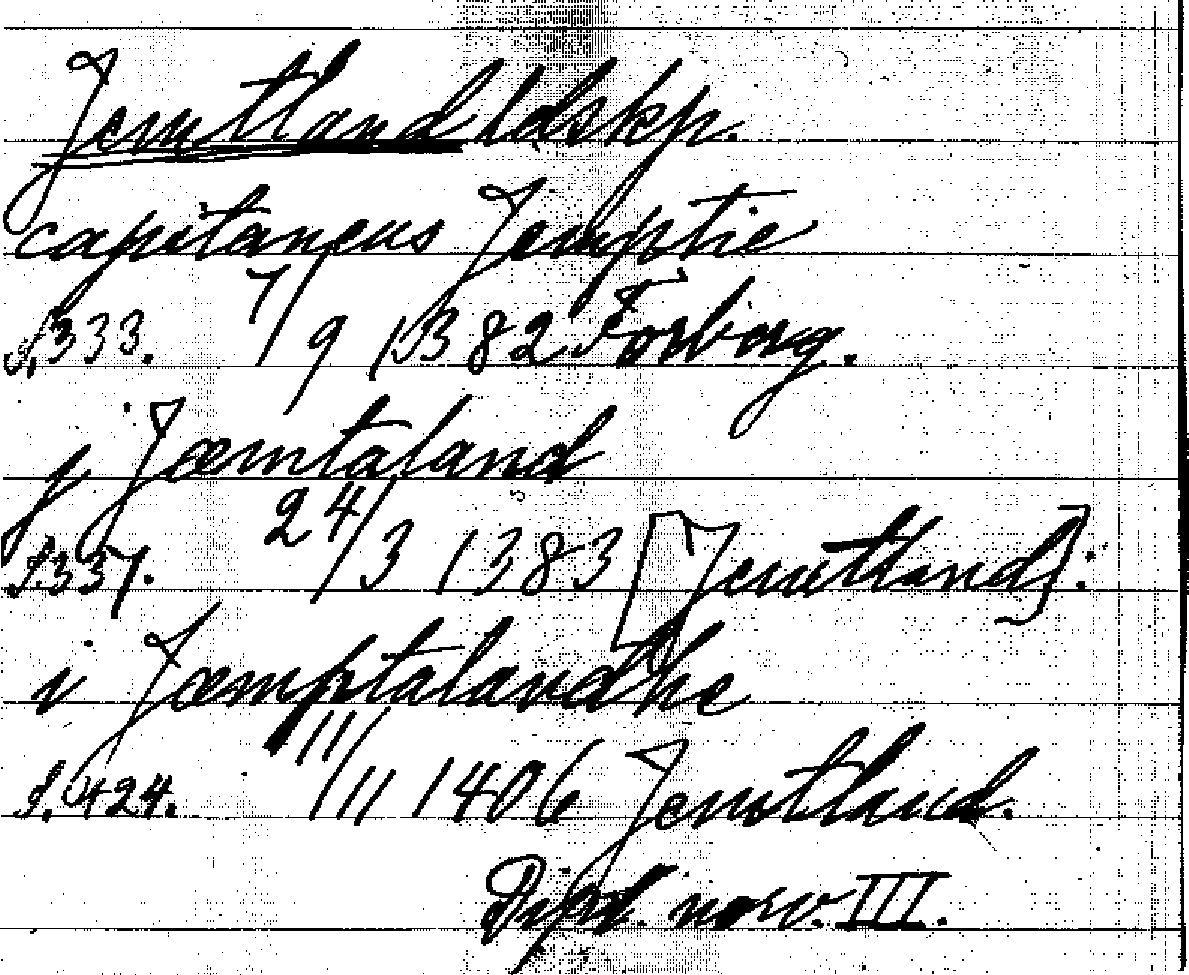 Jemtland ldskp.
capitaneus Jemptie
S. 333. 7/9 1382 Forborg.
j Jæmtaland
S. 337. 24/3 1383 [Jemtland].
i Jæmptalandhe
S. 424. 11/11 1406 Jemtland.
Dipl. norv. III.